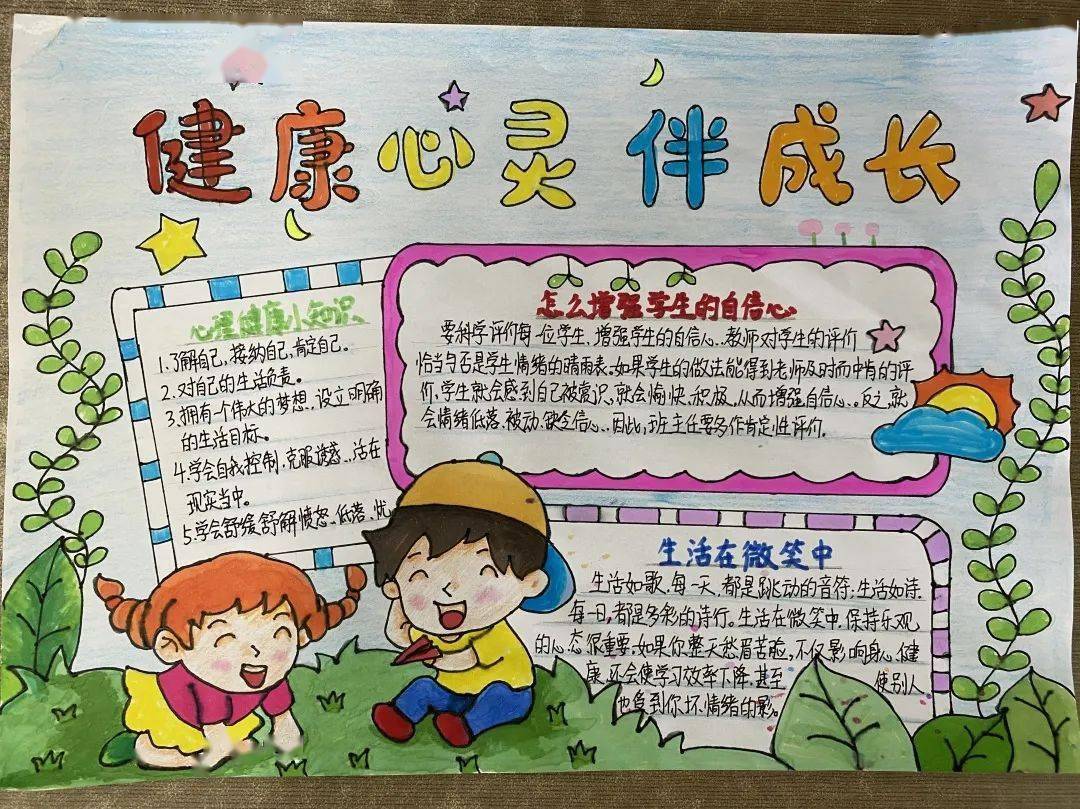 健康心灵 伴成长
心理健康小知识
1.了解自己,接纳自己,肯定自己。
2.对自己的生活负责。
3.拥有一个伟大的梦想、设立明确
的生活目标。
4.学会自我控制、克服诱惑、活在
现实当中。
5.学会舒缓舒解愤怒、低落、忧
怎么增强学生的自信心
要科学评价每一位学生、增强学生的自信心、教师对学生的评价
恰当与否是学生情绪的晴雨表、如果学生的做法能得到老师及时而中肯的评
价、学生就会感到自己被赏识、就会愉快、积极、从而增强自信心、。反之,就
会情绪低落、被动、缺乏信心、因此,班主任要多作肯定性评价.
生活在微笑中
生活如歌.每一天.都是跳动的音符;生活如诗
每一日,都是多彩的诗行。生活在微笑中.保持乐观
的心态很重要.如果你整天愁眉苦脸,不仅影响身心健
康.还会使学习效率下降.甚至 使别人
也受到你坏情绪的影.